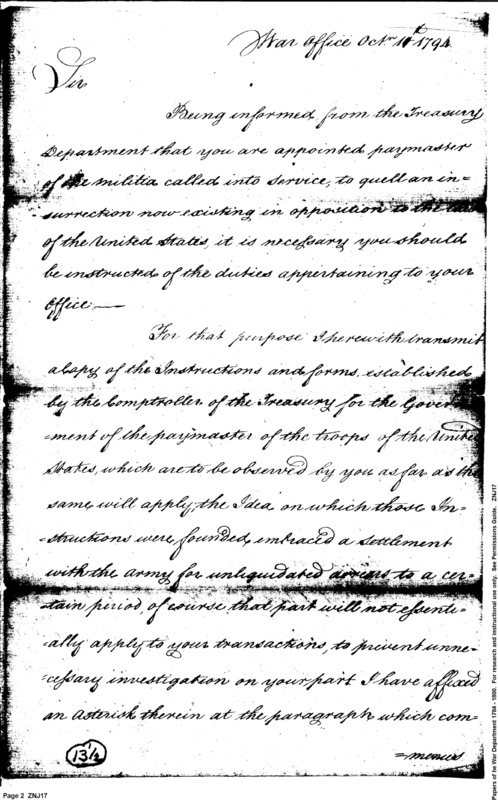 War Office Octr. 11th 1794
Sir
Being informed from the Treasury
Department that you are appointed paymaster
of the militia called into service, to quell an in=
surrection now existing in opposition to the
of the United States, it is necessary you should
be instructed of the duties appertaining to your
Office.—
For that purpose I herewith transmit
a Copy of the Instructions and forms, established
by the Comptroller of the Treasury for the Govern
=ment of the paymaster of the troops of the United
States, which are to be observed by you as far as the
same will apply, the Idea on which those In=
structions were founded, embraced a settlement
with the Army for unliquidated arrears to a cer=
=tain period of course that part will not essenti=
=ally apply to your transactions, to prevent unne=
=cessary investigation on your part I have affixed
an Asterisk therein at the paragraph which com=
=mences
13½
Page 2 ZNJ17
Papers of he War Department 1784 - 1800. For research and instructional use only. See Permissions Guide. ZNJ17